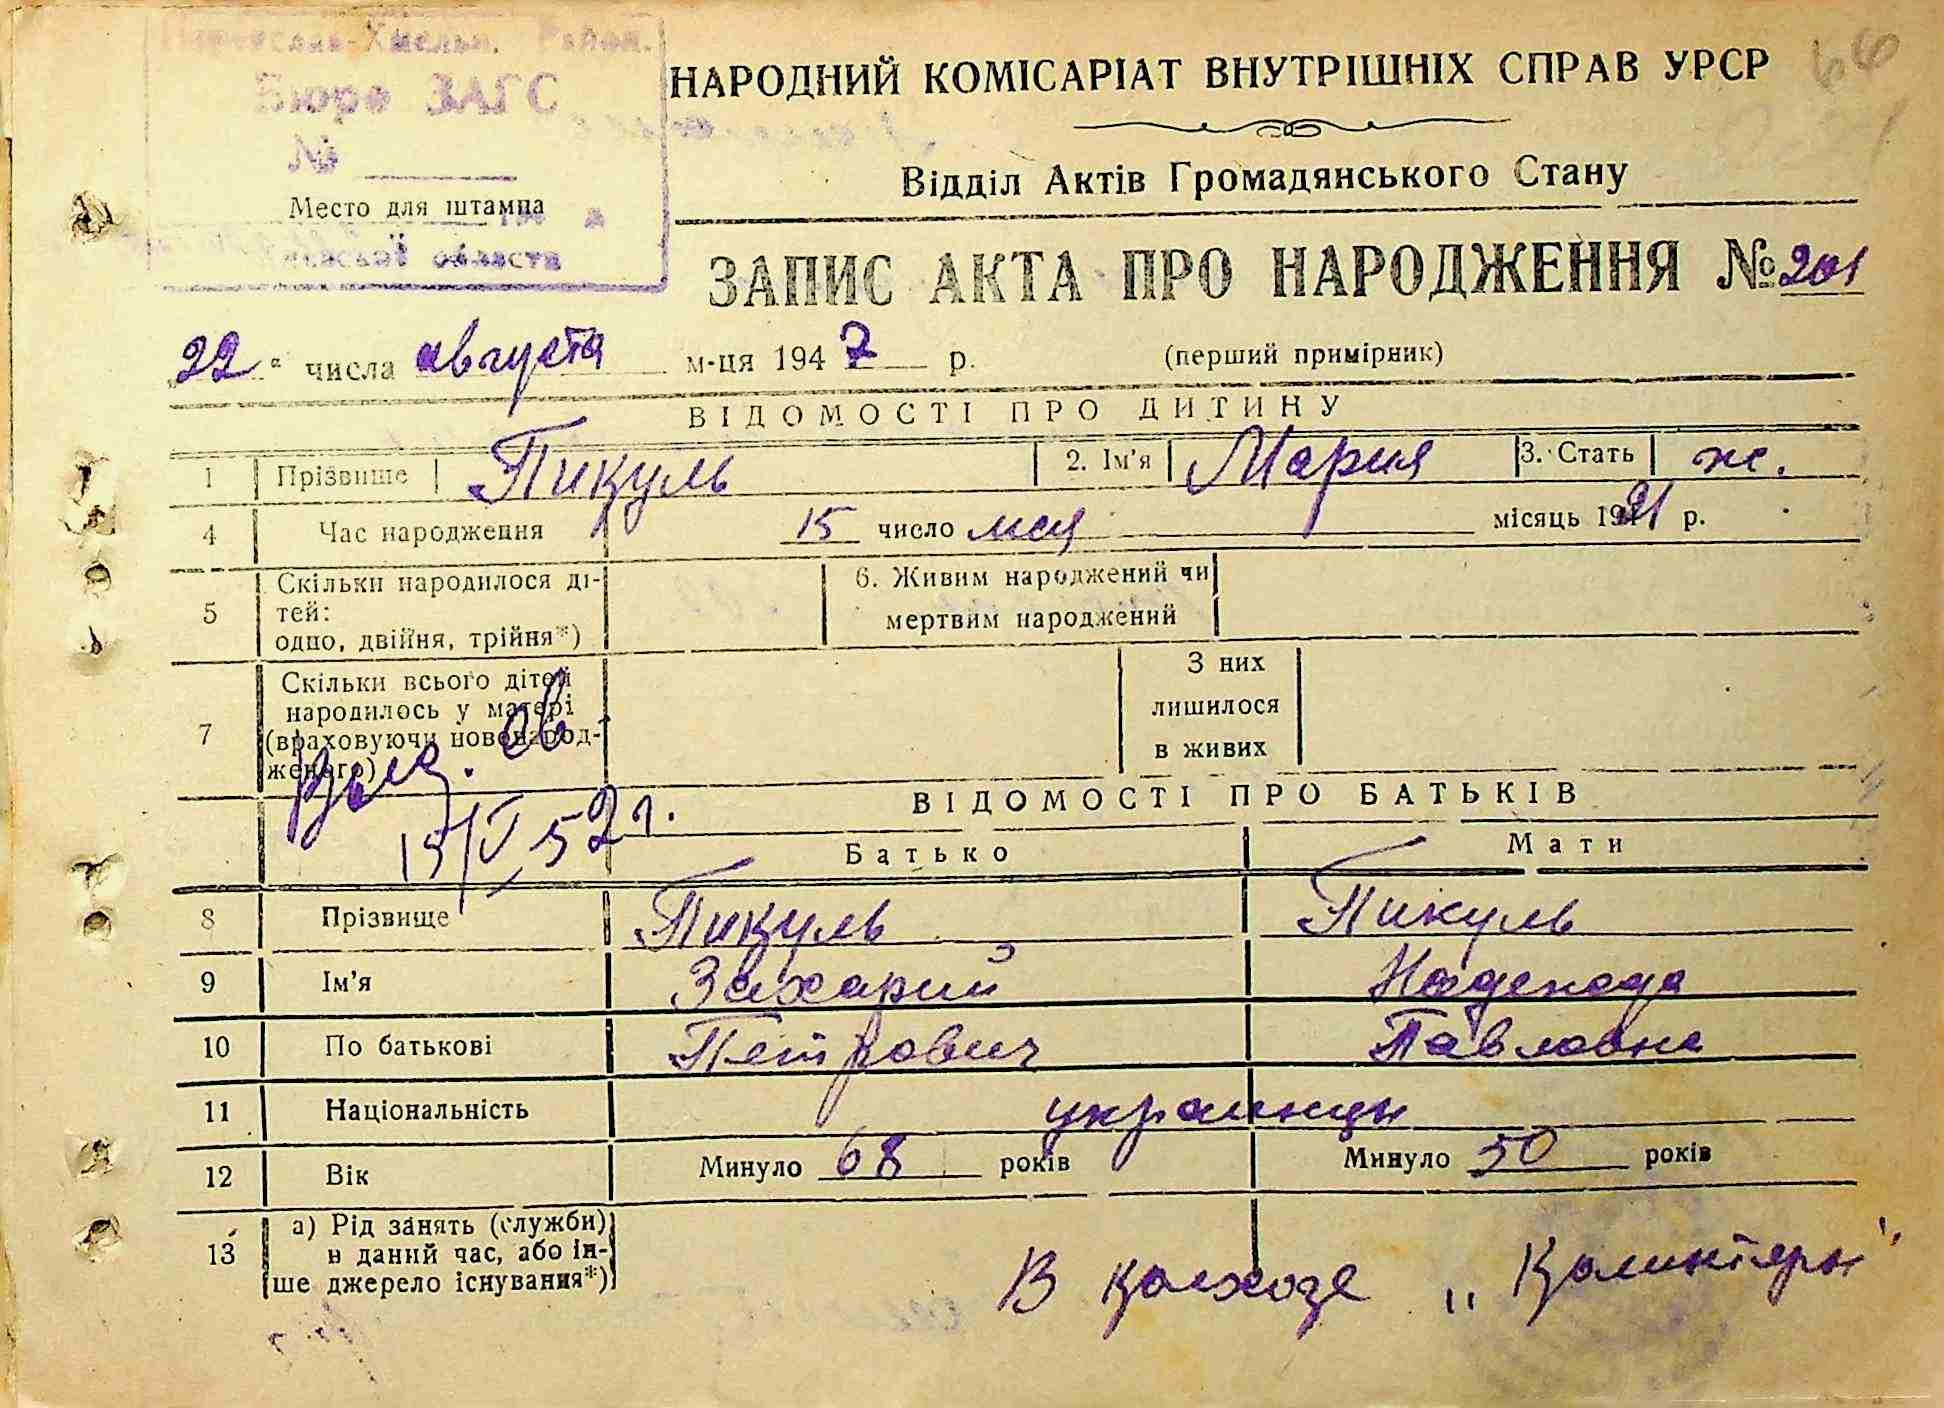 Хмельн. Район.
Бюро ЗАГС
№
Место для штампа
области
НАРОДНИЙ КОМІСАРІАТ ВНУТРІШНІХ СПРАВ УРСР
66
Відділ Актів Громадянського Стану
ЗАПИС АКТА ПРО НАРОДЖЕННЯ № 201
„22“ числа августа м-ця 1947 р. (перший примірник)
ВІДОМОСТІ ПРО ДИТИНУ
1 Прізвище Пикуль 2. Ім'я Мария 3. Стать ж.
4 Час народження 15 число мая місяць 1921 р.
5 Скільки народилося ді-
тей:
одно, двійня, трійня*)
6. Живим народжений чи
мертвим народжений
7 Скільки всього дітей
народилось у матері
(враховуючи новонарод-
женого)
З них
лишилося
в живих
Выд. св
15/V 52 г.
ВІДОМОСТІ ПРО БАТЬКІВ
Батько Мати
8 Прізвище Пикуль Пикуль
9 Ім'я Захарий Надежда
10 По батькові Петрович Павловна
11 Національність украинцы
12 Вік Минуло 68 років Минуло 50 років
13 а) Рід занять (служби)
в даний час, або ін-
ше джерело існування*)
В колхозе „Коминтерн"